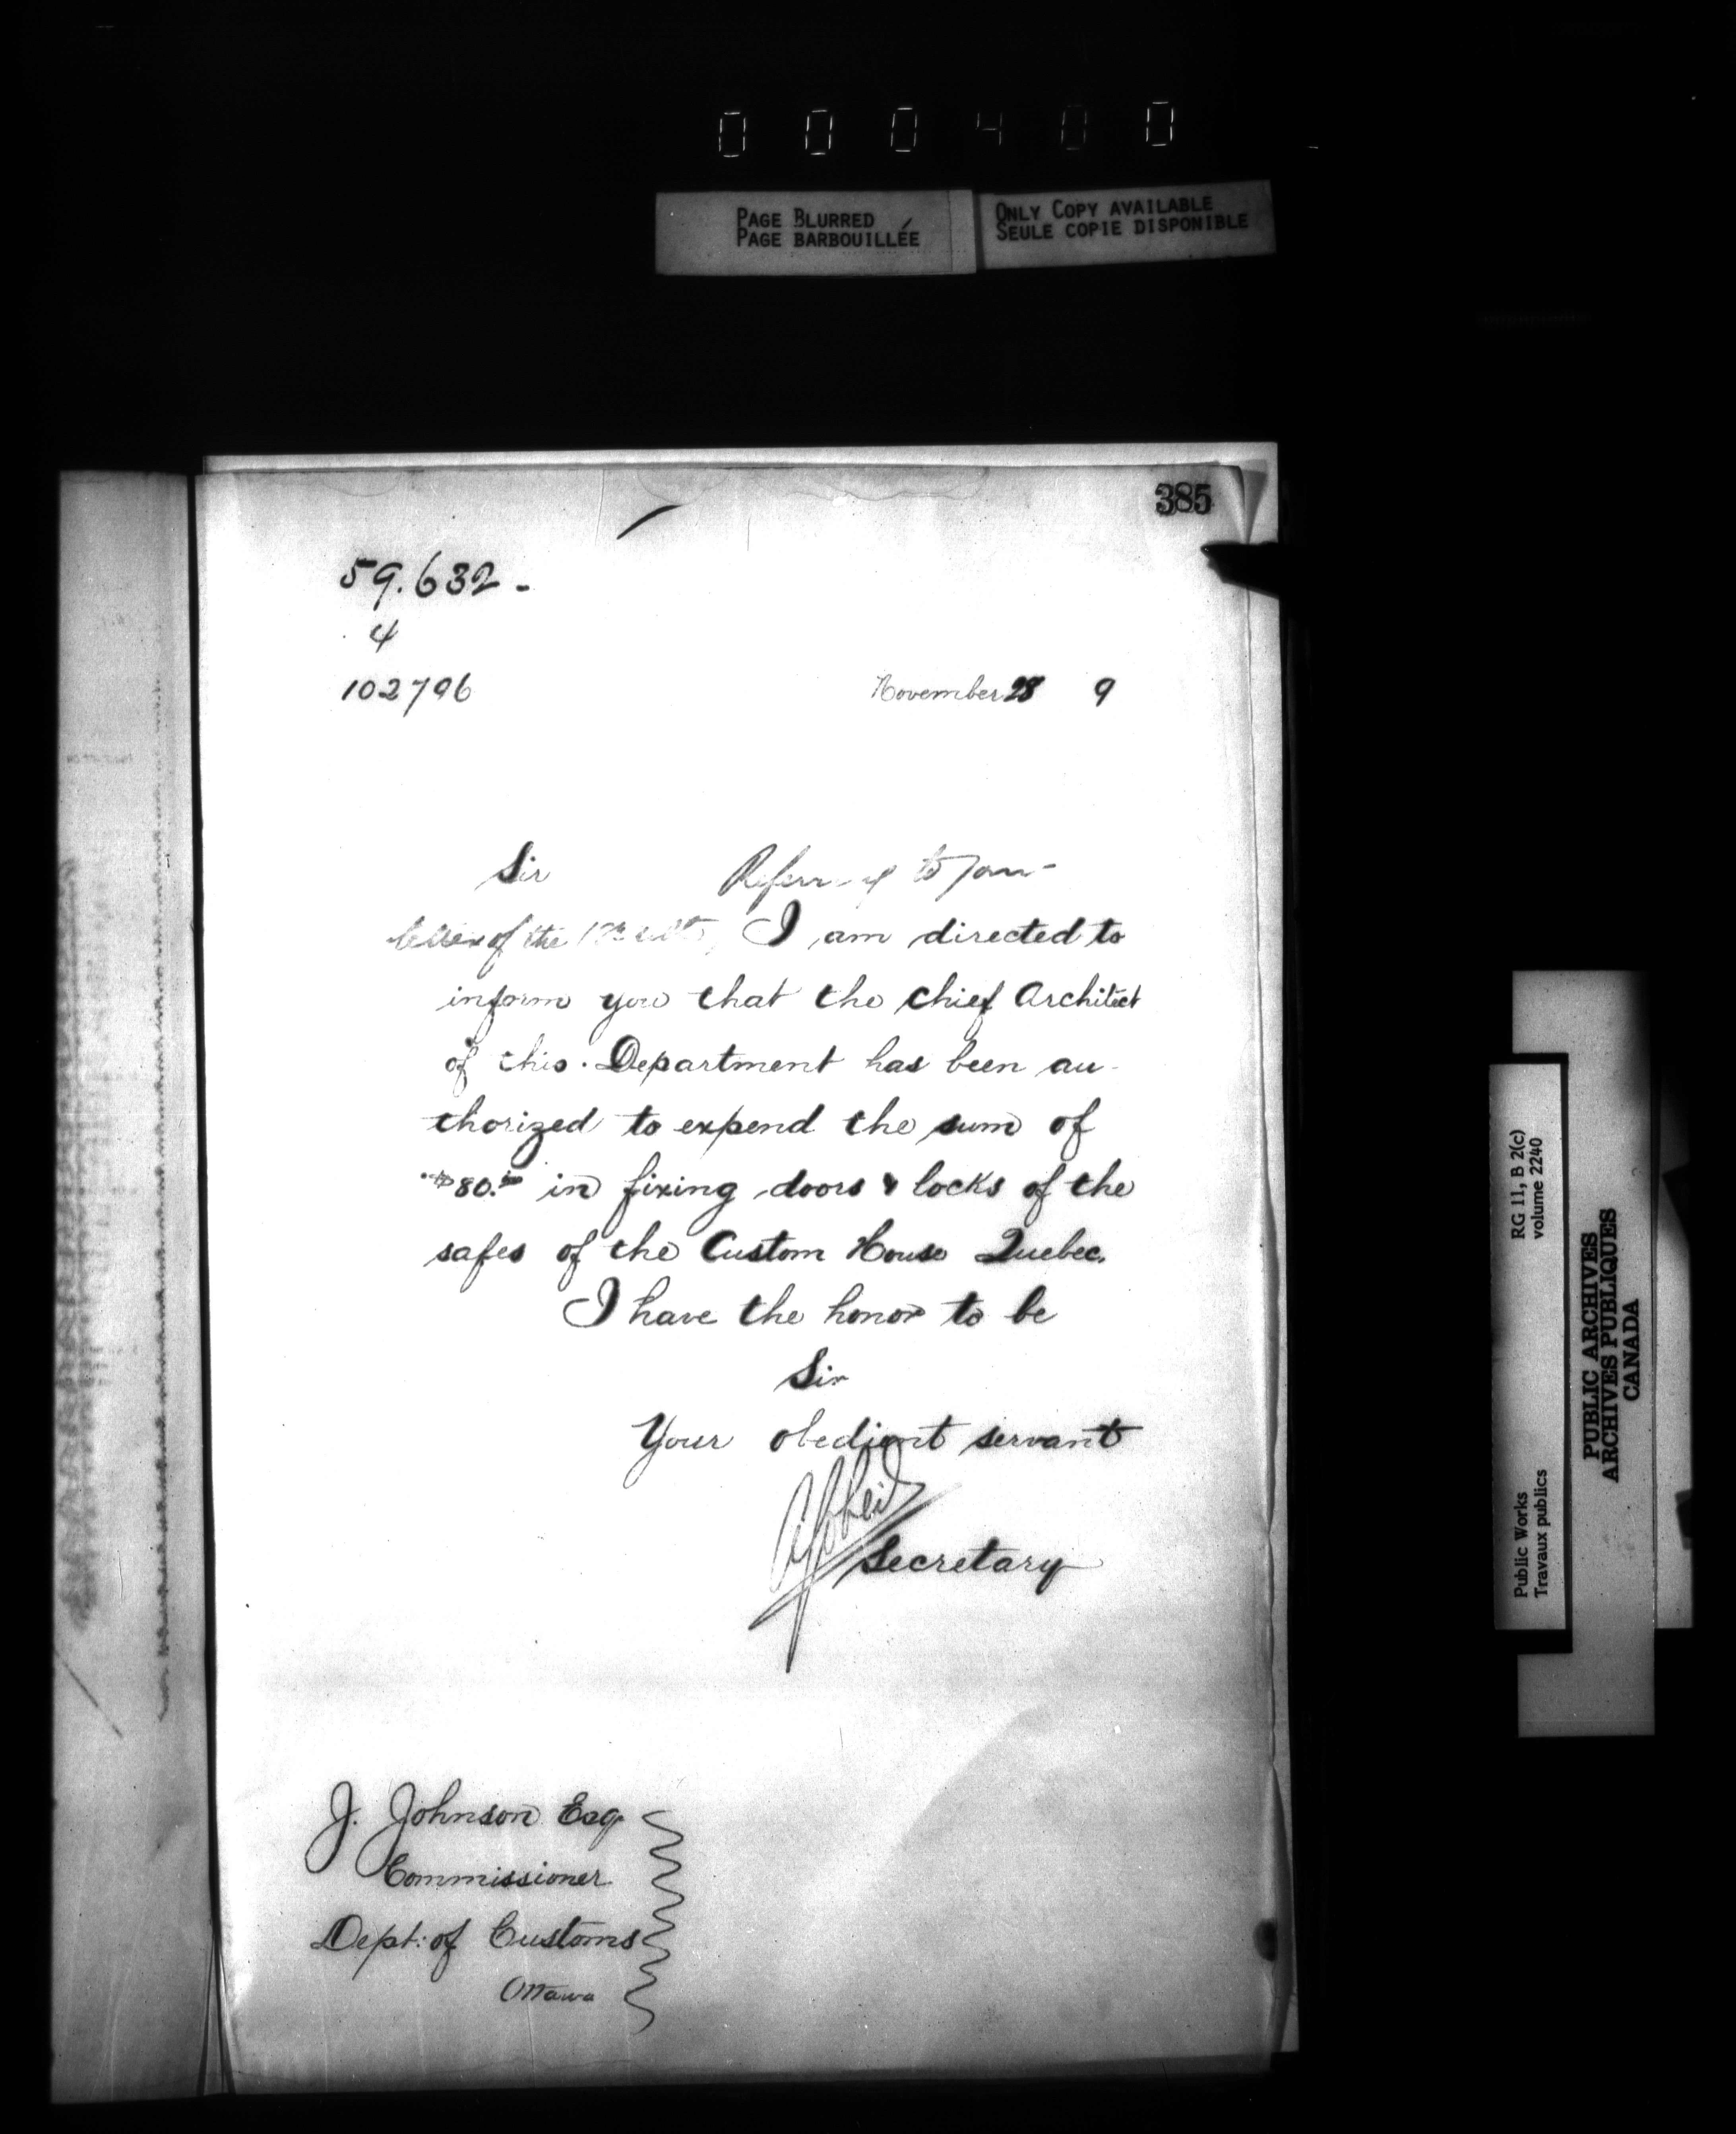 000400
PAGE BLURRED
PAGE BARBOUILLÉE
ONLY COPY AVAILABLE
SEULE COPIE DISPONIBLE
385
59.632-
4
102796
November 28 9
Sir Referring to your
letter of the ulto, I am directed to
inform you that the chief Architect
of this Department has been au-
thorized to expend the sum of
$80.00 in fixing doors & locks of the
safes of the Custom House Quebec.
I have the honor to be
Sir
Your obedient servant
Secretary
J. Johnson Esq
Commissioner
Dept: of Customs
Ottawa
RG 11, B 2(c)
volume 2240
Public Works
Travaux publics
PUBLIC ARCHIVES
ARCHIVES PUBLIQUES
CANADA